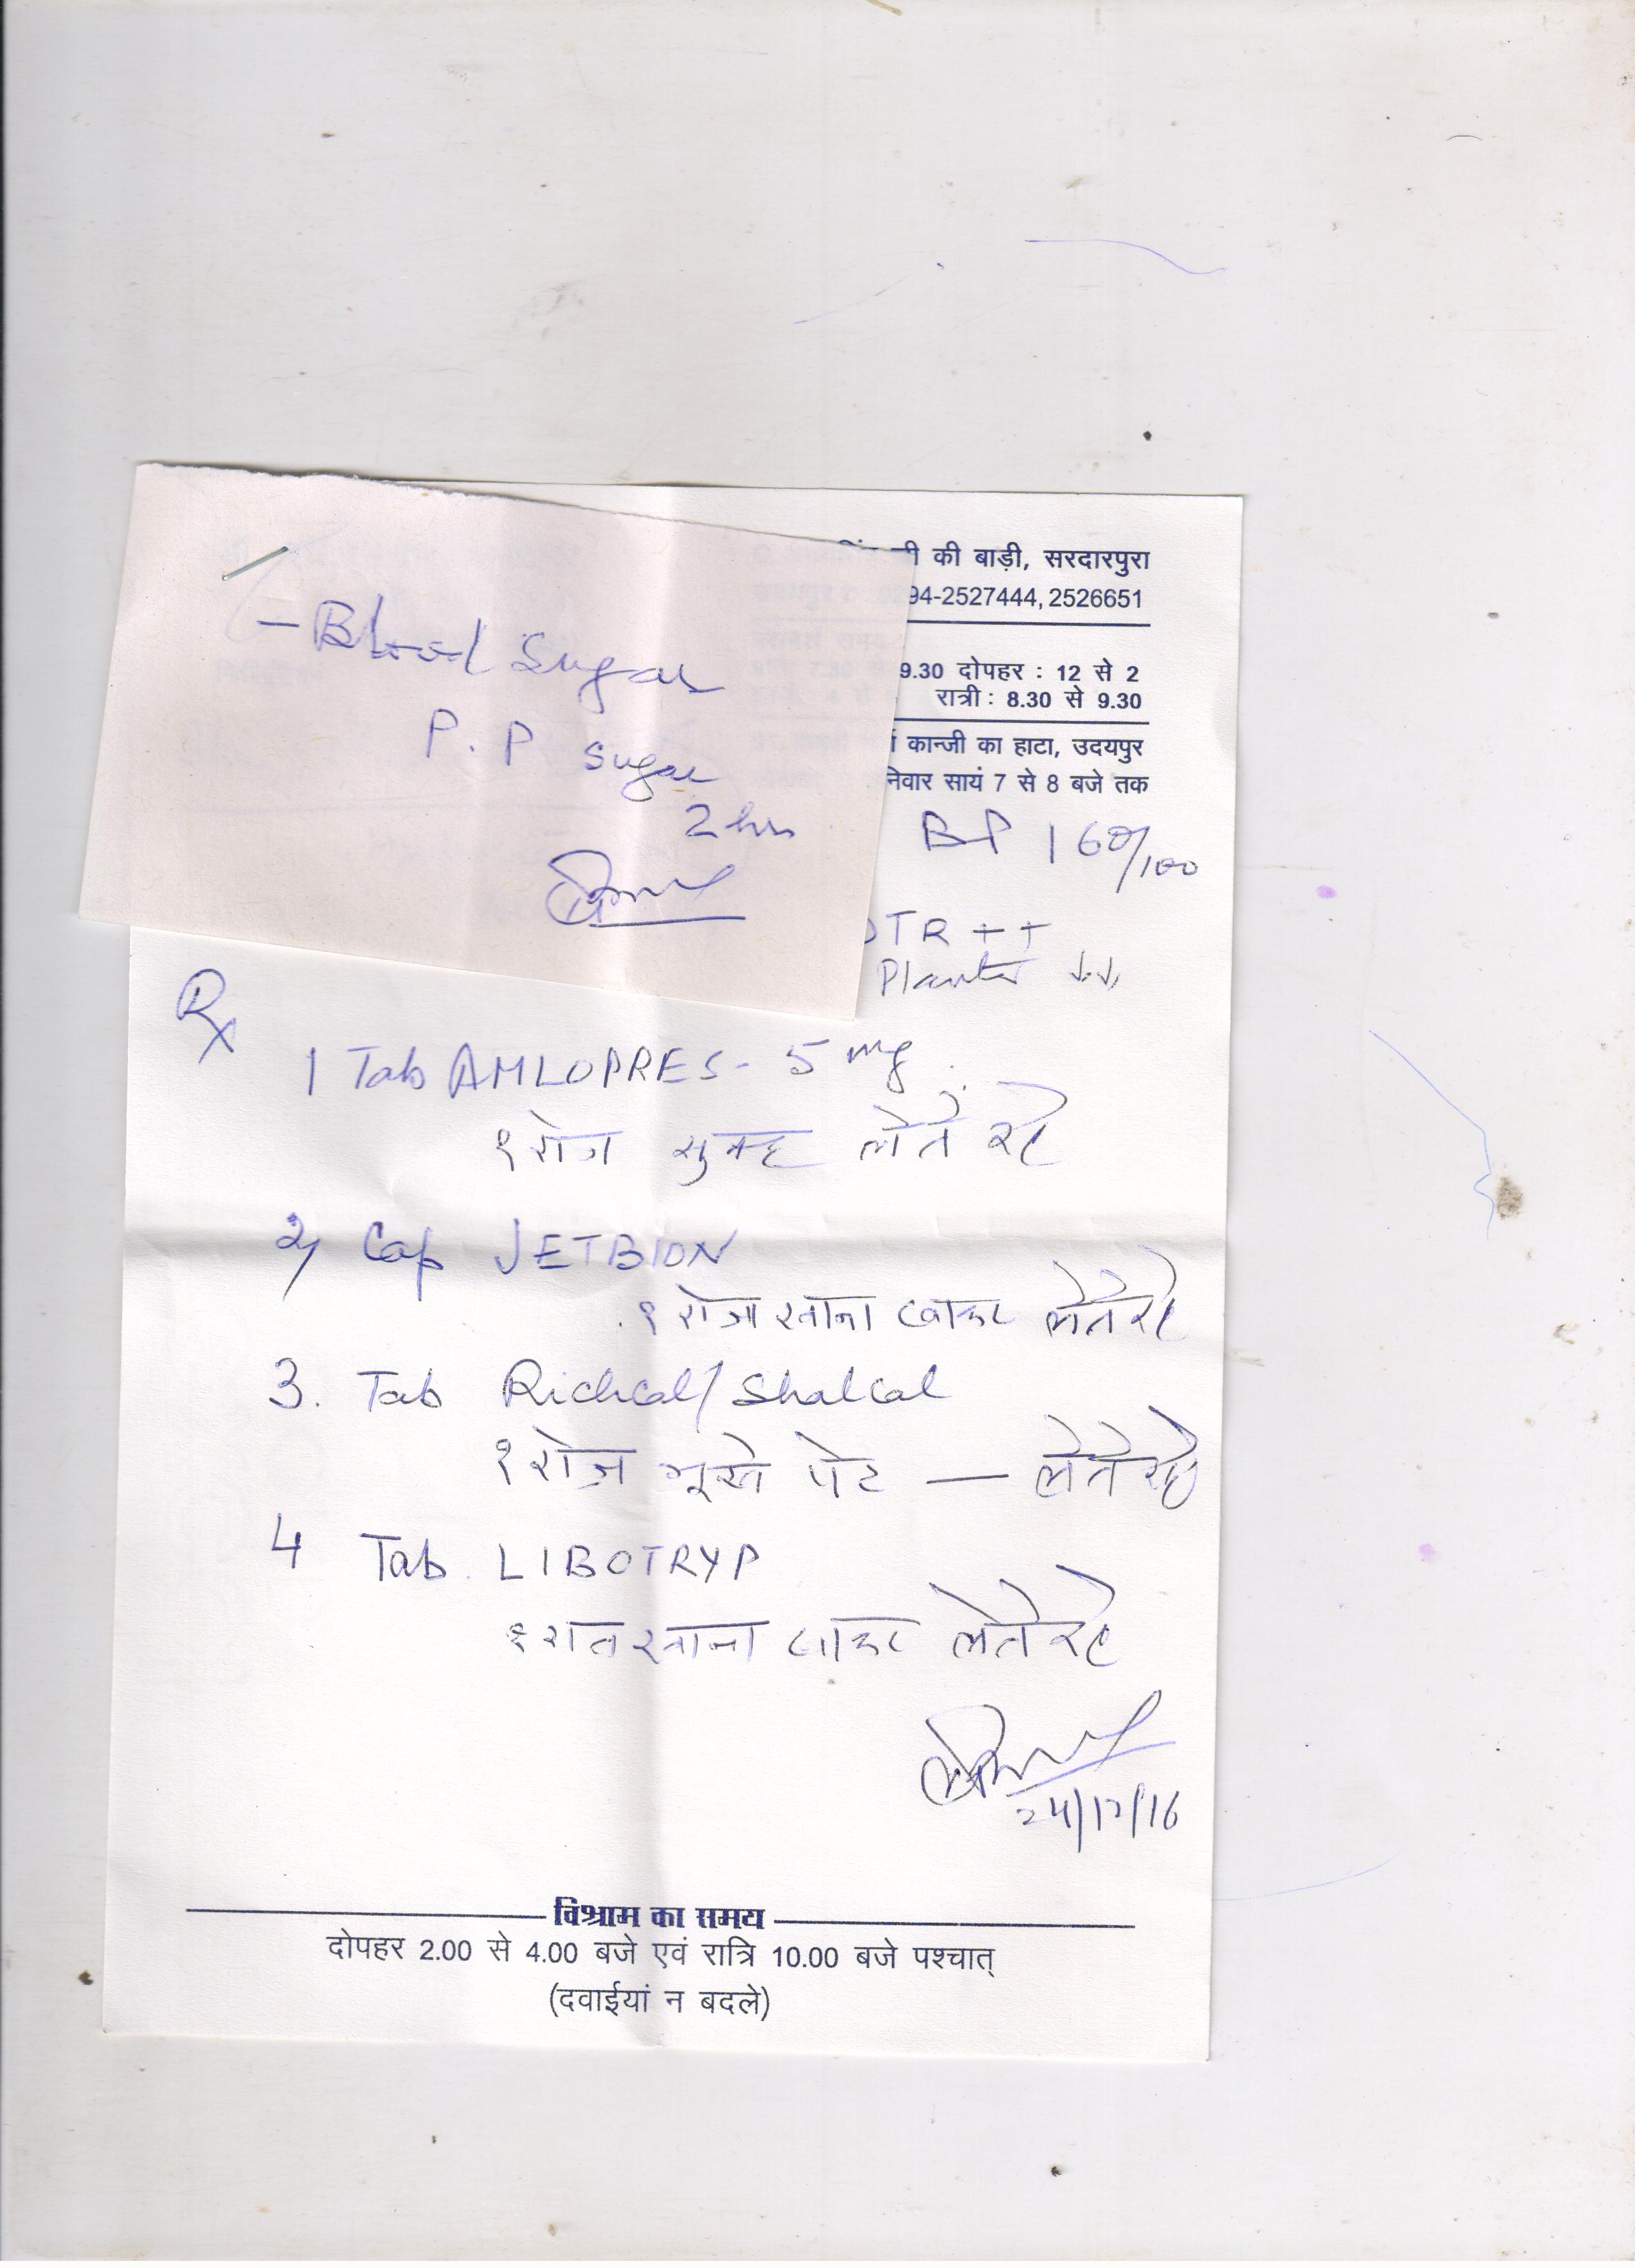 - Blood Sugar
P. P Sugar
2 hrs
जी की बाड़ी, सरदारपुरा
94-2527444, 2526651
9.30 दोपहर : 12 से 2
रात्री : 8.30 से 9.30
कान्जी का हाटा, उदयपुर
निवार सायं 7 से 8 बजे तक
BP 160/100
DTR ++
Planter ↓↓
Rx
1 Tab AMLOPRES - 5 mg
१ रोज सुबह लेते रहे
2) Cap JETBION
१ रोज खाना खाकर लेते रहे
3. Tab Richcal / Shalcal
१ रोज भूखे पेट — लेते रहे
4 Tab. LIBOTRYP
१ रात खाना खाकर लेते रहे
24/12/16
विश्राम का समय
दोपहर 2.00 से 4.00 बजे एवं रात्रि 10.00 बजे पश्चात्
(दवाईयां न बदले)